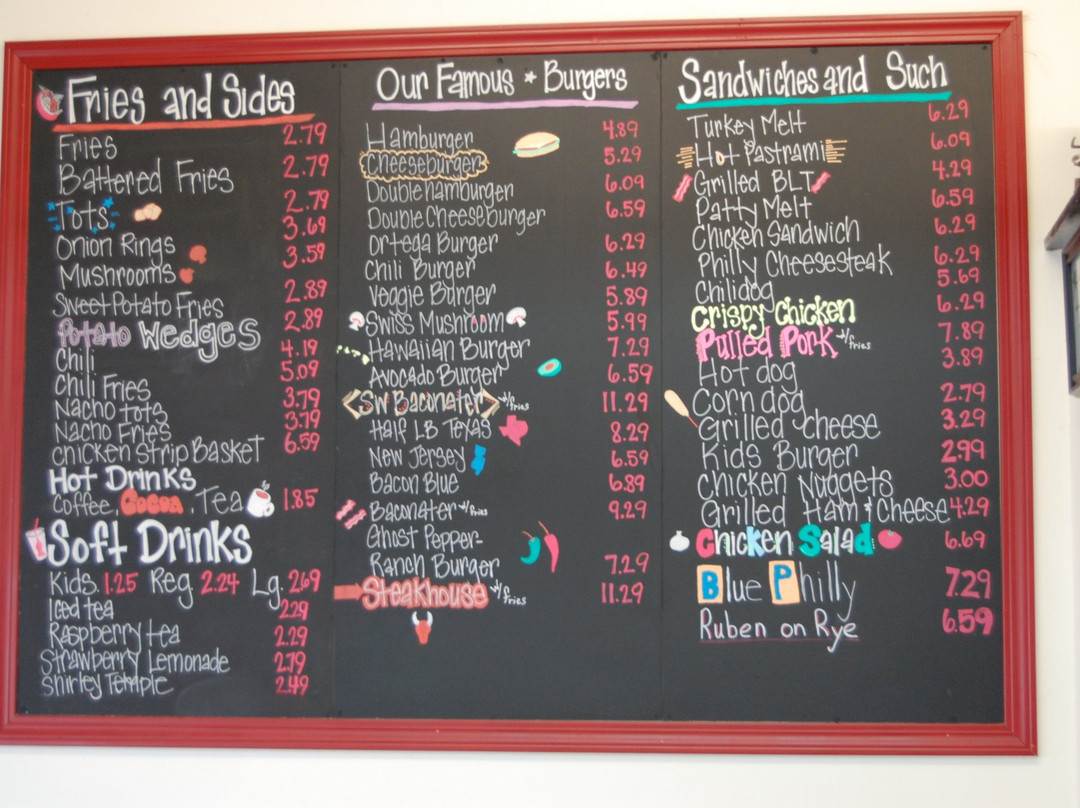 Fries and Sides
Fries 2.79
Battered Fries 2.79
Tots 2.79
Onion Rings 3.69
Mushrooms 3.59
Sweet Potato Fries 2.89
Potato Wedges 2.89
Chili 4.19
Chili Fries 5.09
Nacho tots 3.79
Nacho Fries 3.79
Chicken Strip Basket 6.59
Hot Drinks
Coffee, Cocoa, Tea 1.85
Soft Drinks
Kids 1.25 Reg. 2.24 Lg. 2.69
Iced tea 2.29
Raspberry tea 2.29
Strawberry Lemonade 2.79
Shirley Temple 2.49
Our Famous * Burgers
Hamburger 4.89
Cheeseburger 5.29
Double hamburger 6.09
Double Cheeseburger 6.59
Ortega Burger 6.29
Chili Burger 6.49
Veggie Burger 5.89
Swiss Mushroom 5.99
Hawaiian Burger 7.29
Avocado Burger 6.59
SW Baconater w/fries 11.29
Half LB Texas 8.29
New Jersey 6.59
Bacon Blue 6.89
Baconater w/fries 9.29
Ghost Pepper-
Ranch Burger 7.29
Steakhouse w/fries 11.29
Sandwiches and Such
Turkey Melt 6.29
Hot Pastrami 6.09
Grilled BLT 4.29
Patty Melt 6.59
Chicken Sandwich 6.29
Philly Cheesesteak 6.29
Chilidog 5.69
Crispy Chicken 6.29
Pulled Pork w/fries 7.89
Hot dog 3.89
Corn dog 2.79
Grilled cheese 3.29
Kids Burger 2.99
Chicken Nuggets 3.00
Grilled Ham & Cheese 4.29
Chicken Salad 6.69
Blue Philly 7.29
Ruben on Rye 6.59